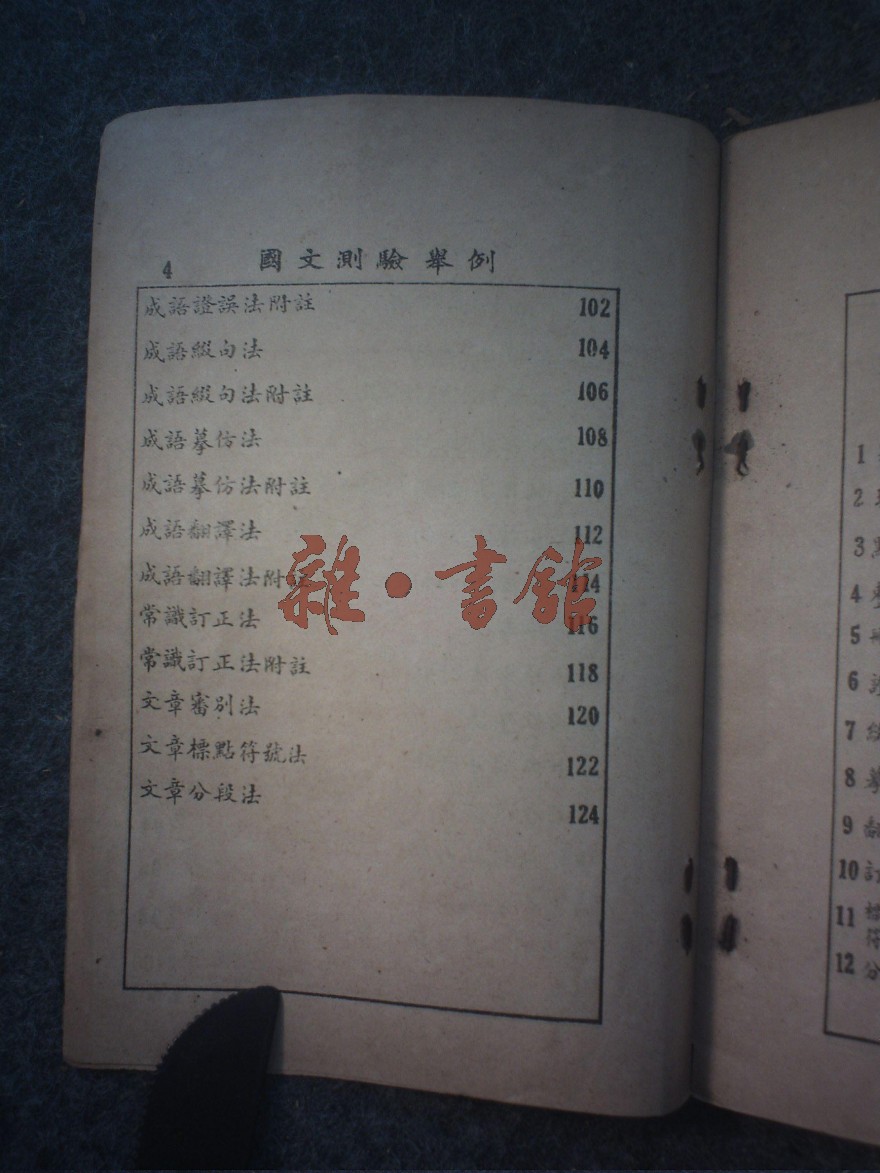 4 國文測驗舉例
成語證誤法附註 102
成語綴句法 104
成語綴句法附註 106
成語摹仿法 108
成語摹仿法附註 110
成語翻譯法 112
成語翻譯法附註 114
常識訂正法 116
常識訂正法附註 118
文章審別法 120
文章標點符號法 122
文章分段法 124
雜·書館
1
2
3
4
5
6
7
8 摹
9 翻
10 訂
11 標
符
12 分